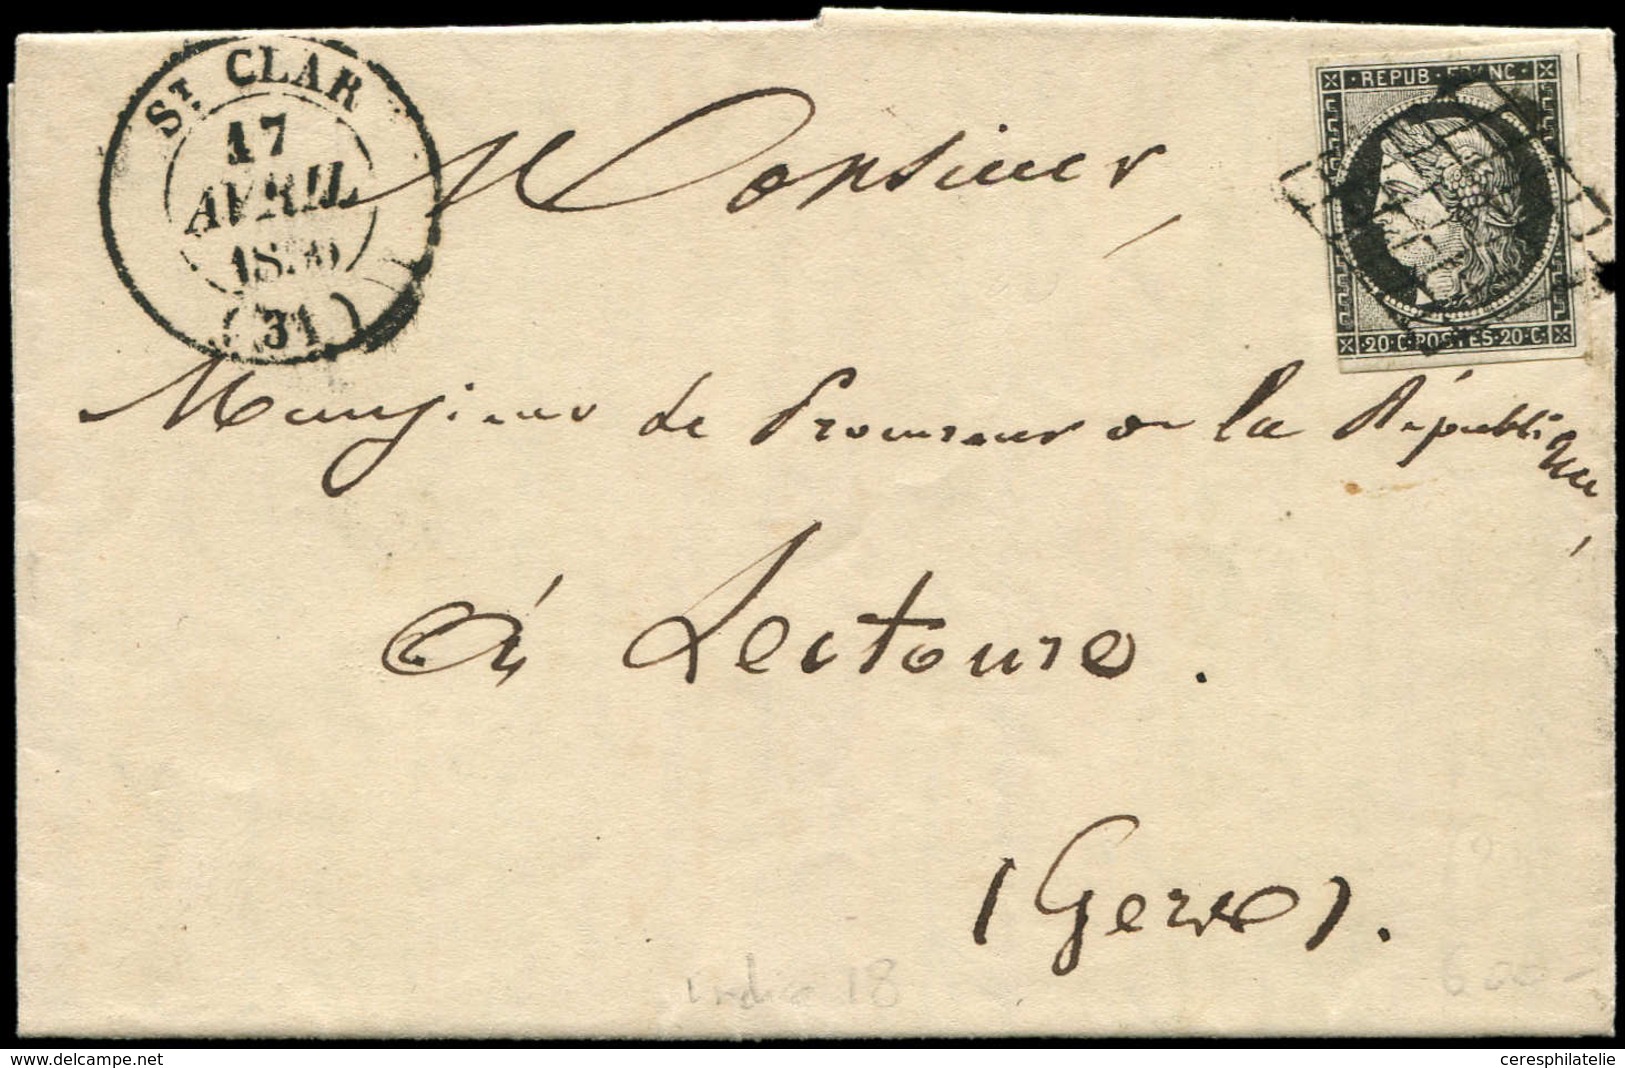 ST. CLAR
17
AVRIL
1850
(31)
REPUB FRANC
20·C·POSTES·20·C
Monsieur,
Monsieur le Procureur de la République,
à Lectoure.
(Gers).
Indice 18
600-
www.delcampe.net
ceresphilatelie